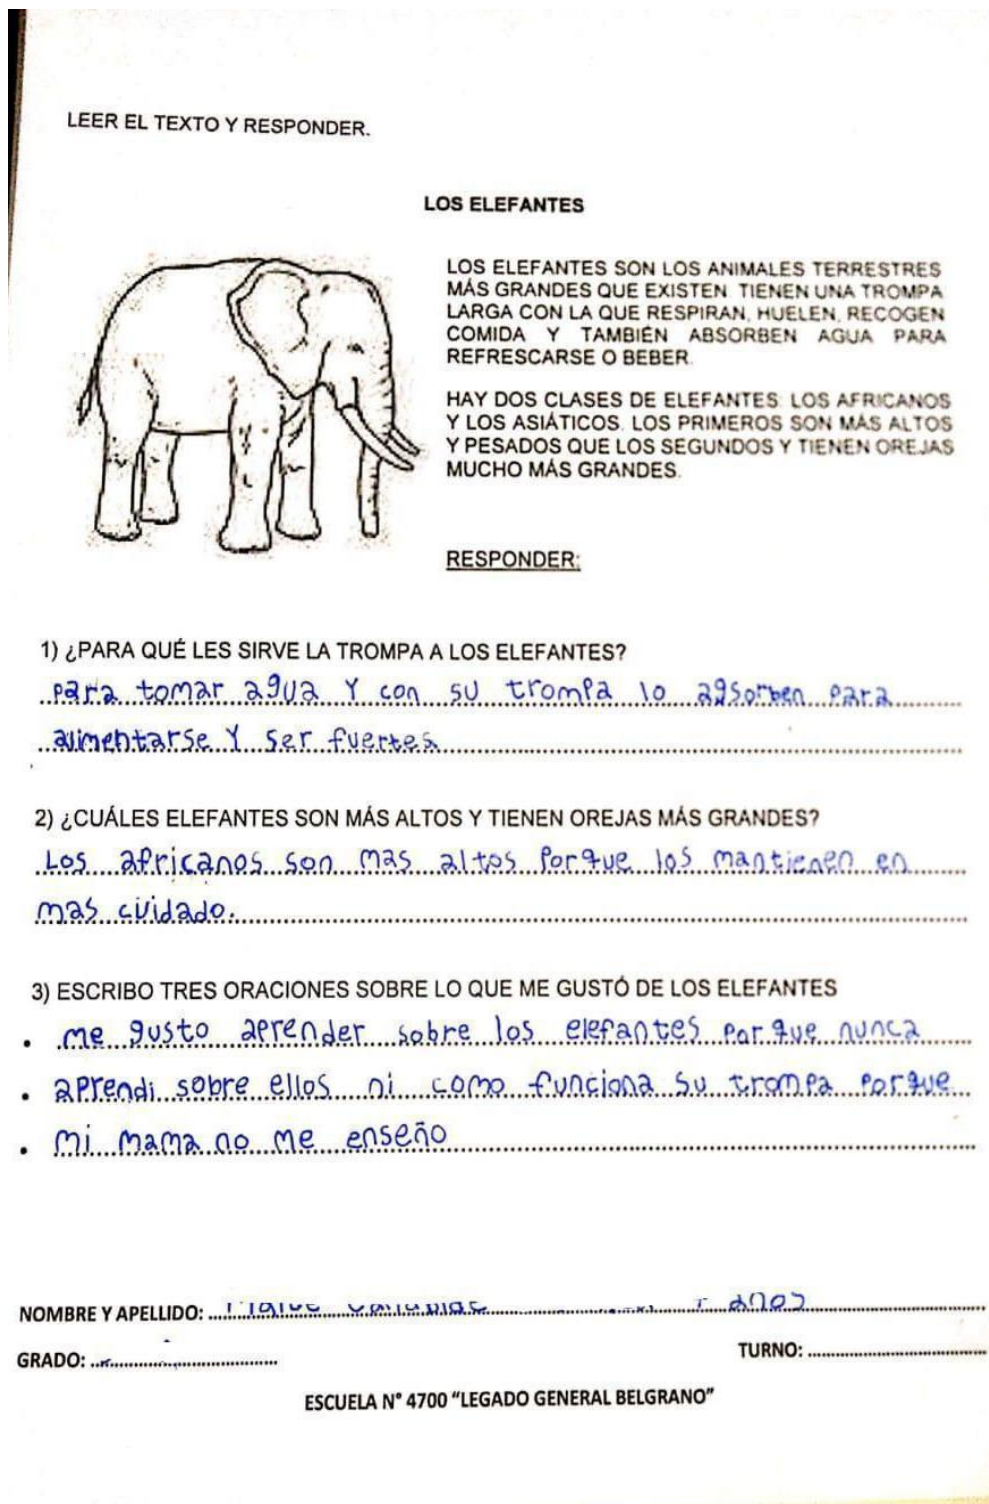 LEER EL TEXTO Y RESPONDER.
LOS ELEFANTES
LOS ELEFANTES SON LOS ANIMALES TERRESTRES
MÁS GRANDES QUE EXISTEN. TIENEN UNA TROMPA
LARGA CON LA QUE RESPIRAN, HUELEN, RECOGEN
COMIDA Y TAMBIÉN ABSORBEN AGUA PARA
REFRESCARSE O BEBER.
HAY DOS CLASES DE ELEFANTES: LOS AFRICANOS
Y LOS ASIÁTICOS. LOS PRIMEROS SON MÁS ALTOS
Y PESADOS QUE LOS SEGUNDOS Y TIENEN OREJAS
MUCHO MÁS GRANDES.
RESPONDER:
1) ¿PARA QUÉ LES SIRVE LA TROMPA A LOS ELEFANTES?
para tomar agua Y con su trompa lo agsorben para
alimentarse Y ser fuertes
2) ¿CUÁLES ELEFANTES SON MÁS ALTOS Y TIENEN OREJAS MÁS GRANDES?
Los africanos son mas altos porque los mantienen en
mas cuidado.
3) ESCRIBO TRES ORACIONES SOBRE LO QUE ME GUSTÓ DE LOS ELEFANTES
• me gusto aprender sobre los elefantes por que nunca
• aprendi sobre ellos ni como funciona su trompa porque
• mi mama no me enseño
NOMBRE Y APELLIDO: años
GRADO:
TURNO:
ESCUELA N° 4700 "LEGADO GENERAL BELGRANO"